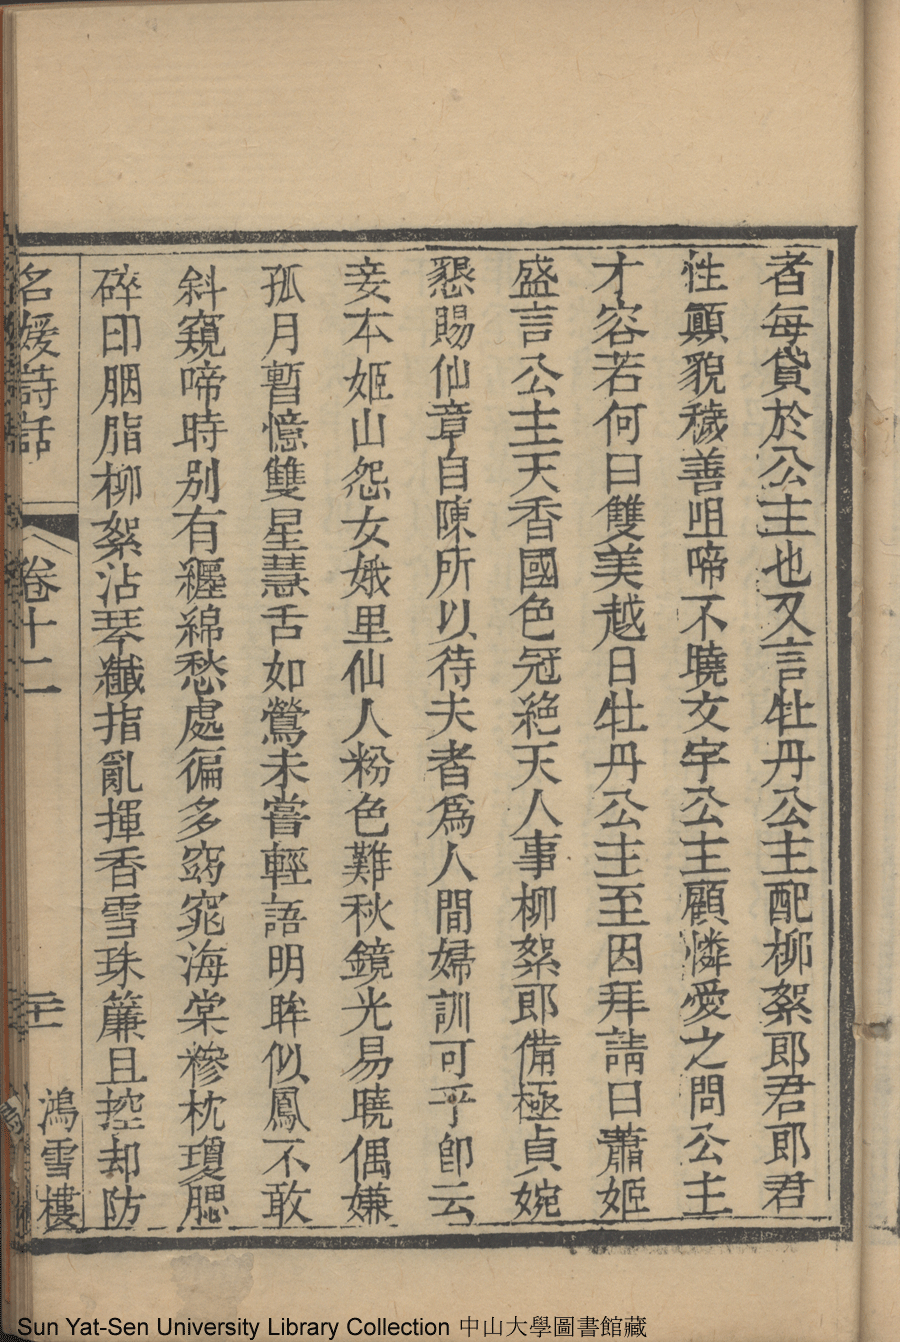 者每貸於公主也又言牡丹公主配柳絮郎君郎君
性顚貌穢善咀啼不曉文字公主顧憐愛之問公主
才容若何曰雙美越日牡丹公主至因拜請曰蕭姬
盛言公主天香國色冠絶天人事柳絮郎備極貞婉
懇賜仙章自陳所以待夫者爲人間婦訓可乎卽云
妾本姬山怨女娥里仙人粉色難秋鏡光易曉偶嫌
孤月暫憶雙星慧舌如鶯未嘗輕語明眸似鳳不敢
斜窺啼時别有纒綿愁處徧多窈窕海棠糝枕瓊腮
碎印胭脂柳絮沾琴纖指亂揮香雪珠簾且控却防
名媛詩話
卷十二
二十一
鴻雪樓
Sun Yat-Sen University Library Collection 中山大學圖書館藏